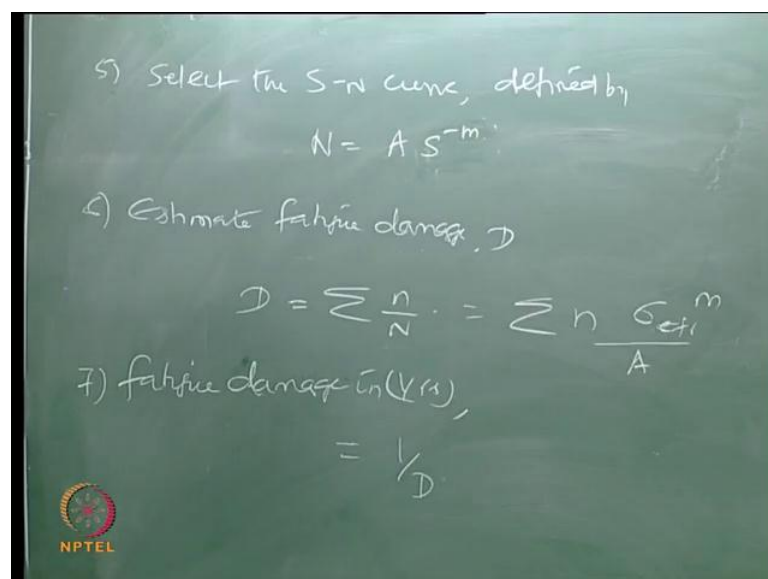 5) Select the S-N curve, defined by
N = A S^-m
6) Estimate fatigue damage, D
D = Σ n/N = Σ n σ_eff^m / A
7) fatigue damage in (Yrs),
= 1/D
NPTEL